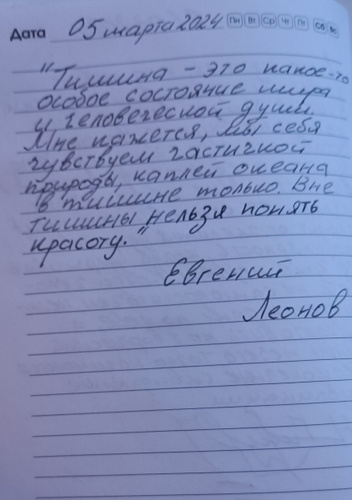 Дата 05 марта 2024 Пн Вт Ср Чт Пт Сб Вс
"Тишина - это какое-то
особое состояние мира
и человеческой души.
Мне кажется, мы себя
чувствуем частичкой
природы, каплей океана
в тишине только. Вне
тишины нельзя понять
красоту."
Евгений
Леонов